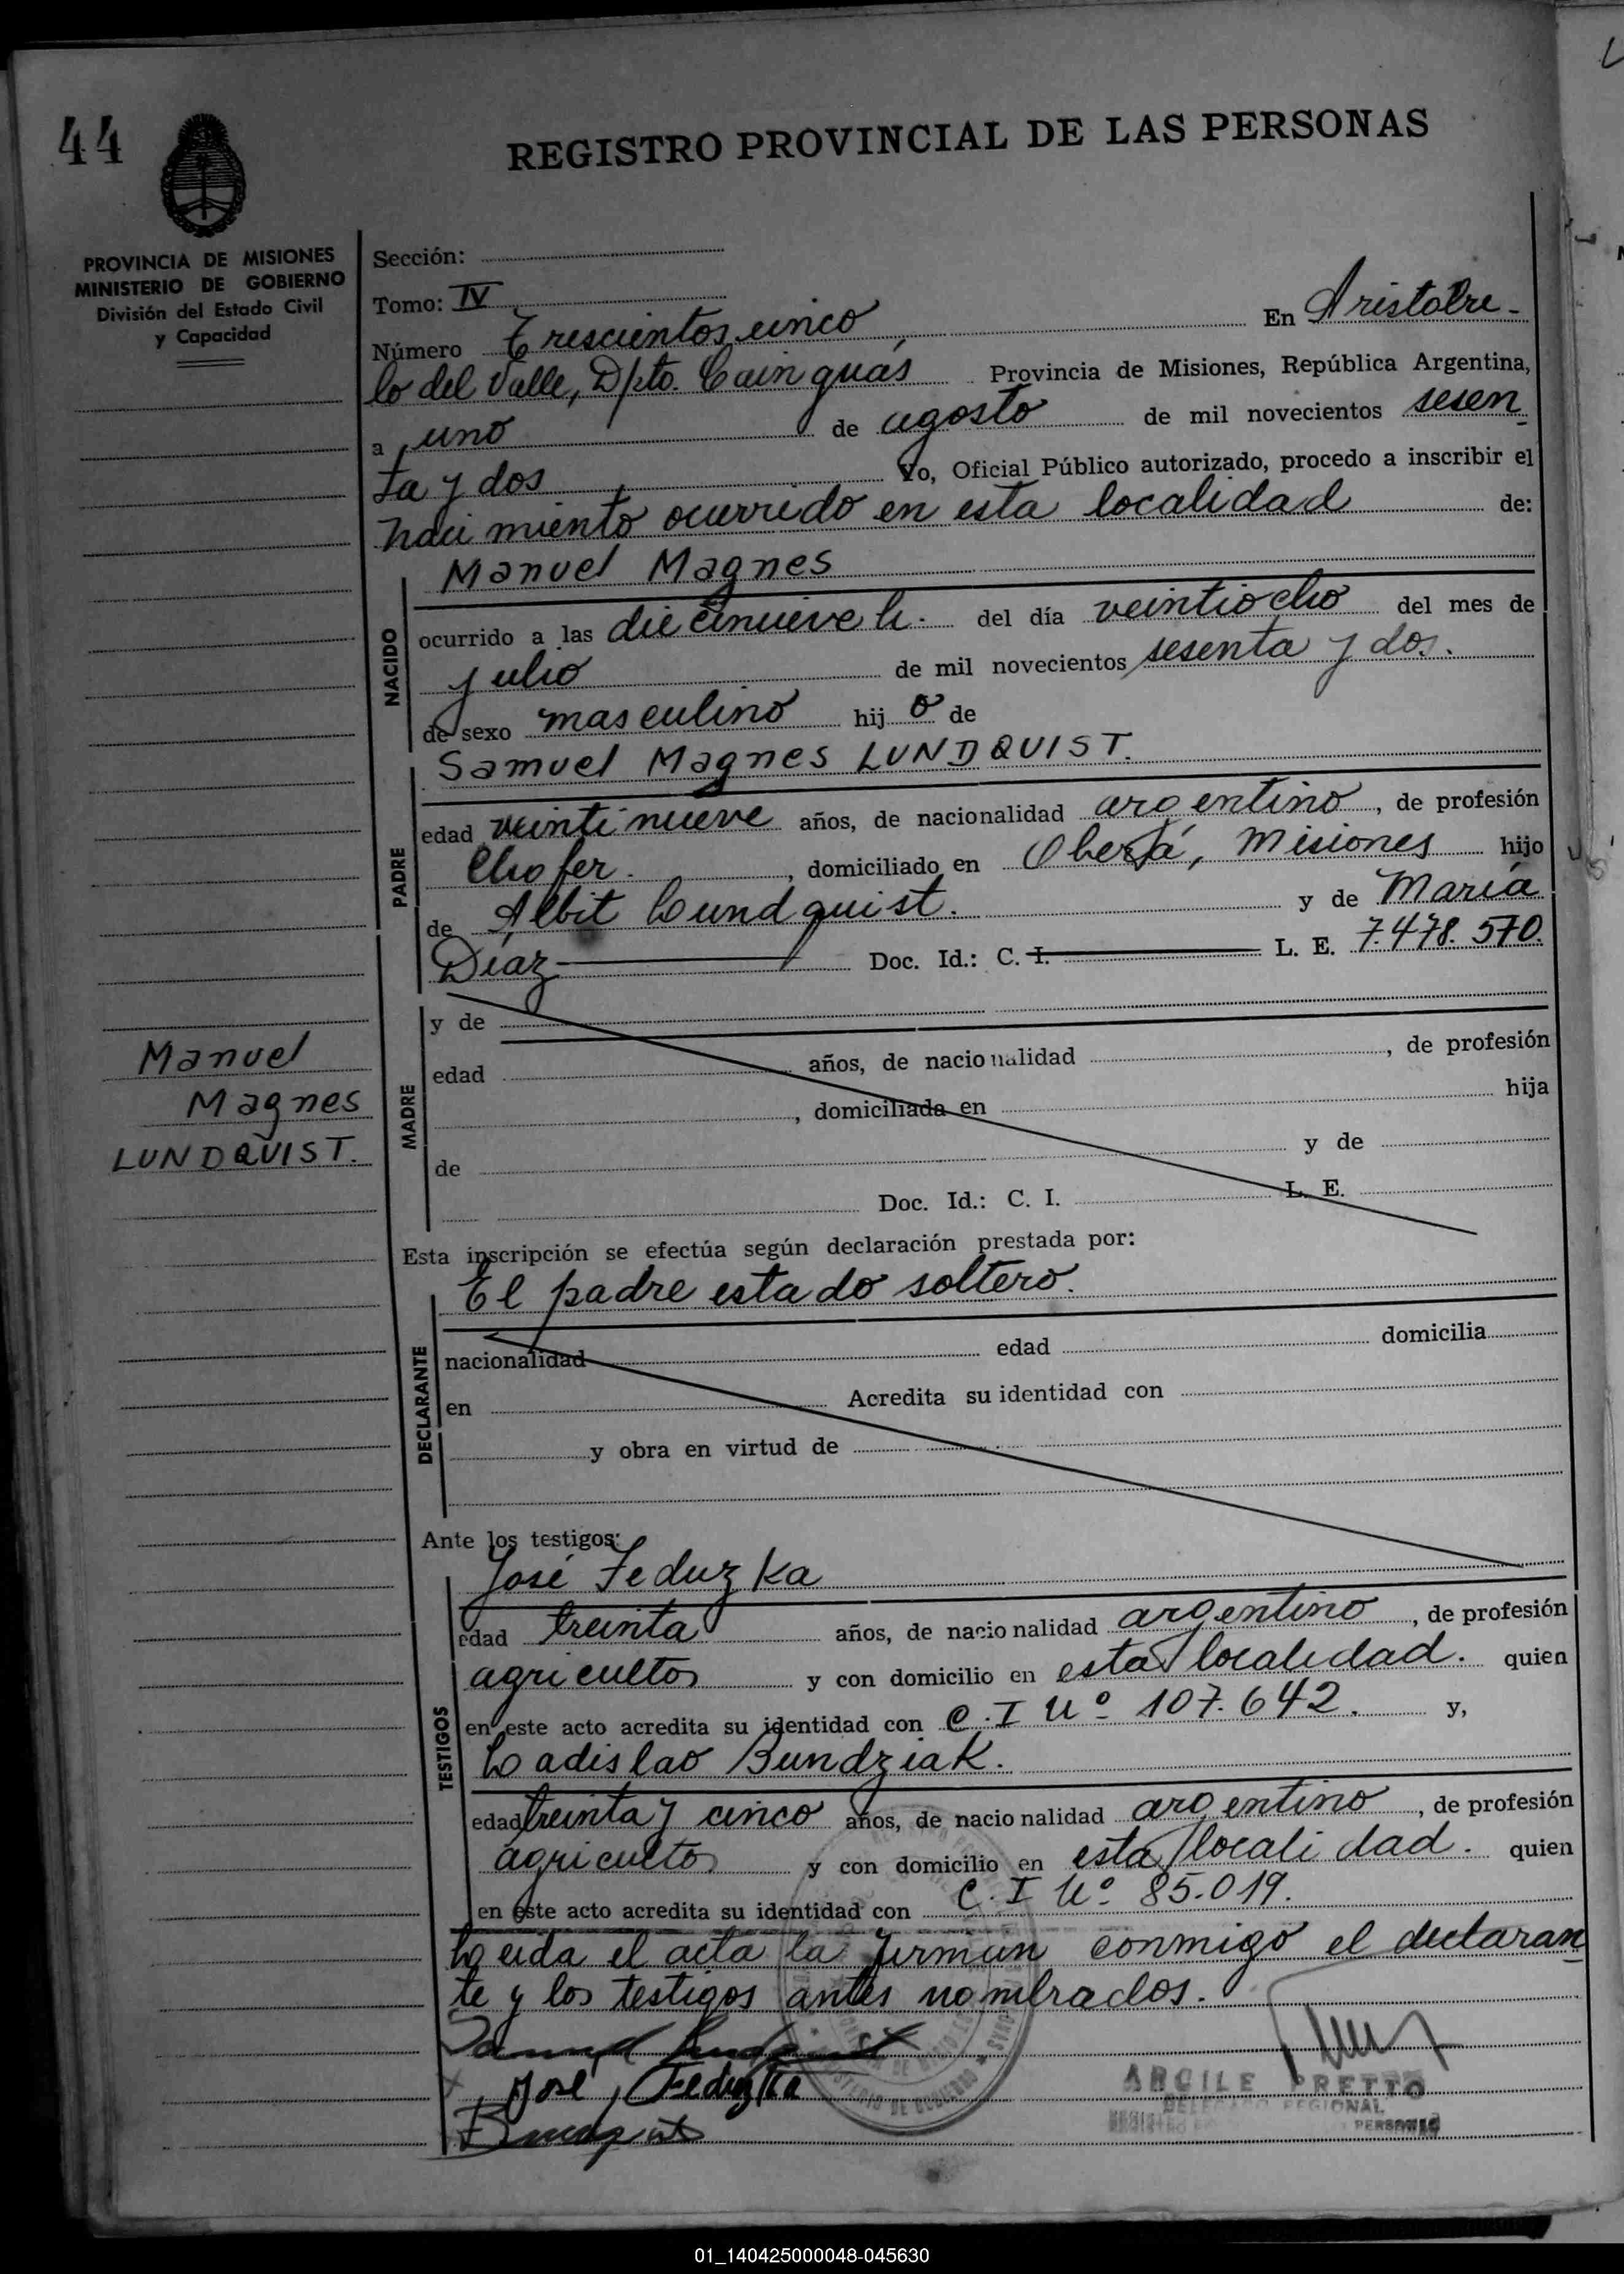 44
REGISTRO PROVINCIAL DE LAS PERSONAS
PROVINCIA DE MISIONES
MINISTERIO DE GOBIERNO
División del Estado Civil
y Capacidad
Sección:
Tomo: IV
Número Trescientos cinco, En Aristobu-
lo del Valle, Dpto. Cainguás Provincia de Misiones, República Argentina,
a uno de agosto de mil novecientos sesen
ta y dos Yo, Oficial Público autorizado, procedo a inscribir el
nacimiento ocurrido en esta localidad de:
NACIDO
Manuel Magnes
ocurrido a las diecinueve h. del día veintiocho del mes de
julio de mil novecientos sesenta y dos.
de sexo masculino hij o de
PADRE
Samuel Magnes LUNDQUIST.
edad veintinueve años, de nacionalidad argentino, de profesión
Chofer. , domiciliado en Oberá, Misiones hijo
de Albit Lundquist. y de María
Díaz Doc. Id.: C. I. L. E. 7.478.570.
MADRE
y de
edad años, de nacionalidad , de profesión
, domiciliada en hija
de y de
Doc. Id.: C. I. L. E.
Manuel
Magnes
LUNDQUIST.
Esta inscripción se efectúa según declaración prestada por:
DECLARANTE
El padre estado soltero.
nacionalidad edad domicilia
en Acredita su identidad con
y obra en virtud de
Ante los testigos:
TESTIGOS
José Feduzka
edad treinta años, de nacionalidad argentino, de profesión
agricultor y con domicilio en esta localidad. quien
en este acto acredita su identidad con C.I Nº 107.642. y,
Ladislao Bundziak.
edad treinta y cinco años, de nacionalidad argentino, de profesión
agricultor y con domicilio en esta localidad. quien
en este acto acredita su identidad con C.I Nº 85.019.
Leida el acta la firman conmigo el declaran
te y los testigos antes nombrados.
José Feduzka
ARGILE PRETTO
DELEGADO REGIONAL
PERSONAS
01_140425000048-045630